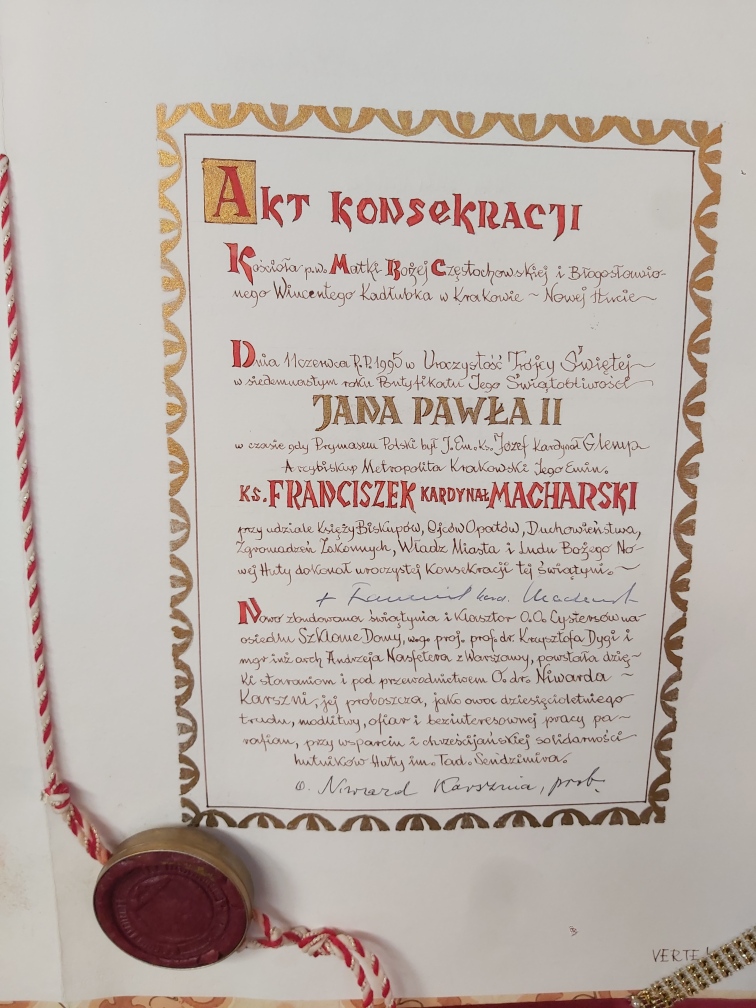 AKT KONSEKRACJI
Kościoła p.w. Matki Bożej Częstochowskiej i Błogosławio-
nego Wincentego Kadłubka w Krakowie ~ Nowej Hucie ~
Dnia 11 czerwca R.P. 1995 w Uroczystość Trójcy Świętej ~
w siedemnastym roku Pontyfikatu Jego Świątobliwości
JANA PAWŁA II
w czasie gdy Prymasem Polski był J.Em. ks. Józef Kardynał Glemp ~
Arcybiskup Metropolita Krakowski Jego Emin.
KS. FRANCISZEK KARDYNAŁ MACHARSKI
przy udziale Księży Biskupów, Ojców Opatów, Duchowieństwa,
Zgromadzeń Zakonnych, Władz Miasta i Ludu Bożego No-
wej Huty dokonał uroczystej Konsekracji tej świątyni. ~
+ Franciszek kard. Macharski
Nowo zbudowana świątynia i Klasztor O.O. Cystersów na
osiedlu Szklane Domy, w.g. proj. prof. dr. Krzysztofa Dygi i
mgr inż arch Andrzeja Nasfetera z Warszawy, powstała dzię-
ki staraniom i pod przewodnictwem O. dr. Niwarda ~
Karszni, jej proboszcza, jako owoc dziesięcioletniego
trudu, modlitwy, ofiar i bezinteresownej pracy pa-
rafian, przy wsparciu i chrześcijańskiej solidarności
hutników Huty im. Tad. Sendzimira.
o. Niward Karsznia, prob.
3
VERTE